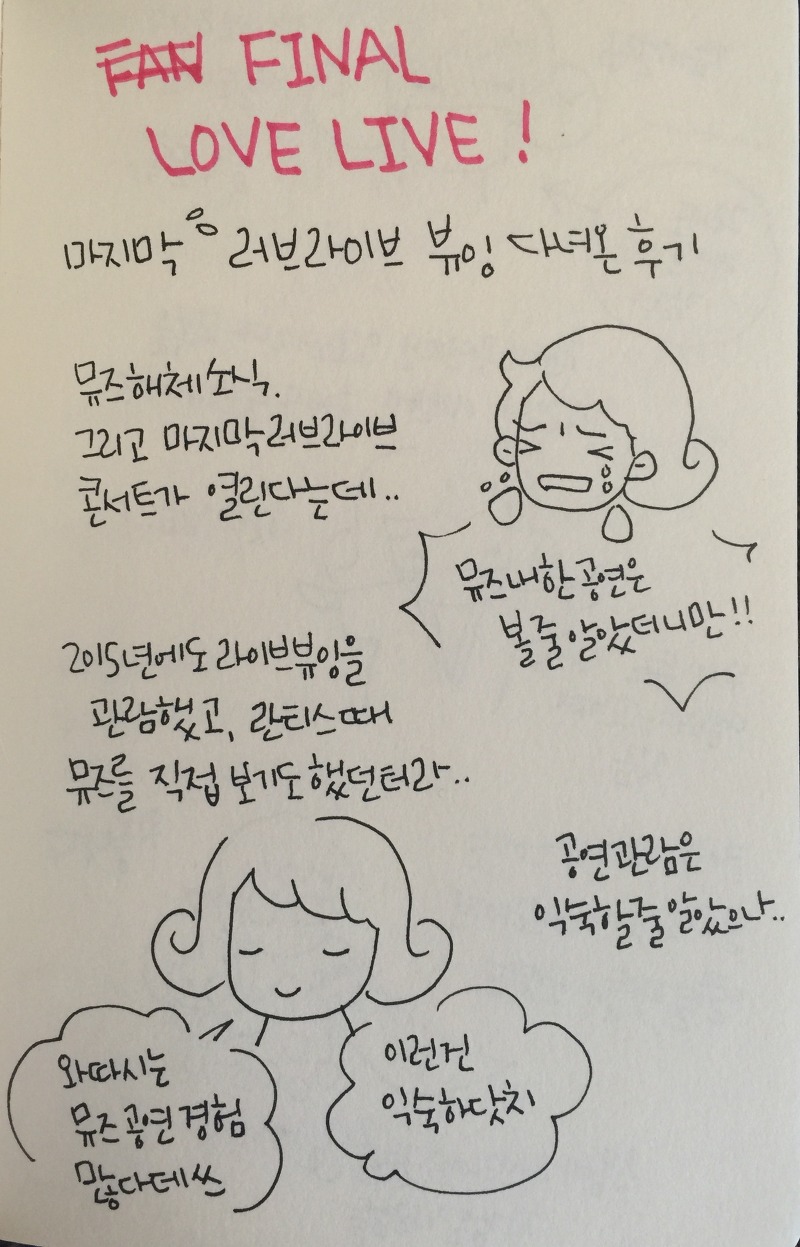 FAN FINAL
LOVE LIVE!
마지막 러브라이브 뷰잉 다녀온 후기
뮤즈해체소식.
그리고 마지막러브라이브
콘서트가 열린다는데..
뮤즈내한공연은
볼줄알았더니만!!
2015년에도 라이브뷰잉을
관람했고, 란티스때
뮤즈를 직접 보기도했던터라..
공연관람은
익숙할줄알았으나..
와따시는
뮤즈공연경험
많다데쓰
이런건
익숙하닷치